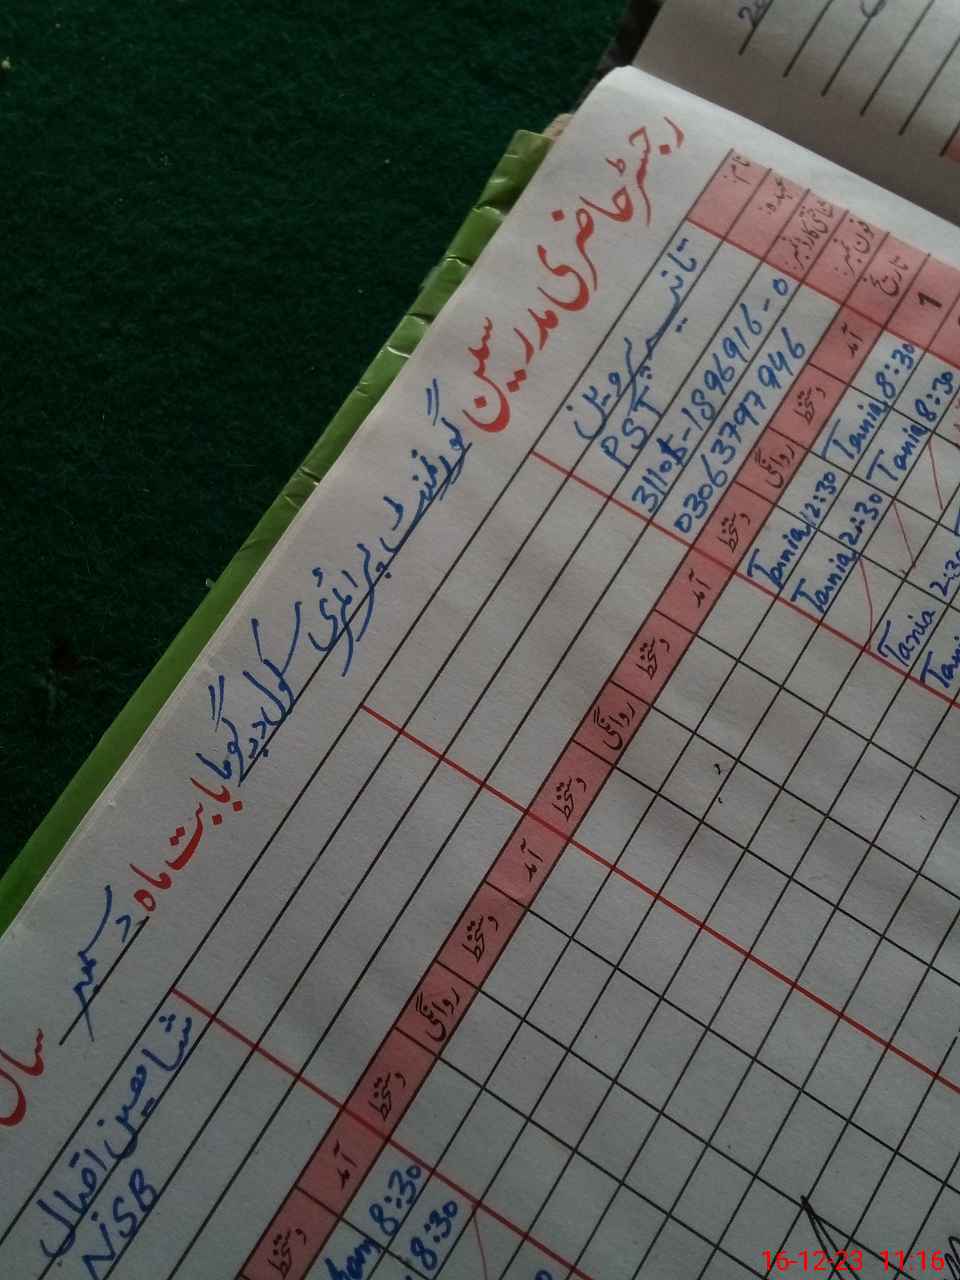 رجسٹر حاضری مدرسین گورنمنٹ پرائمری سکول گوما بابت ماہ دسمبر سال
نام:
تانیہ پروین
شاہین اقبال
عہدہ:
PST
NSB
شناختی کارڈ نمبر:
31105-1896916-0
فون نمبر:
03063797946
تاریخ
آمد
دستخط
روانگی
دستخط
آمد
دستخط
روانگی
دستخط
آمد
دستخط
روانگی
دستخط
آمد
دستخط
1
8:30 Tania 12:30 Tania
8:30
8:30 Tania 2:30 Tania
8:30
2:30 Tania
16-12-23 11:16